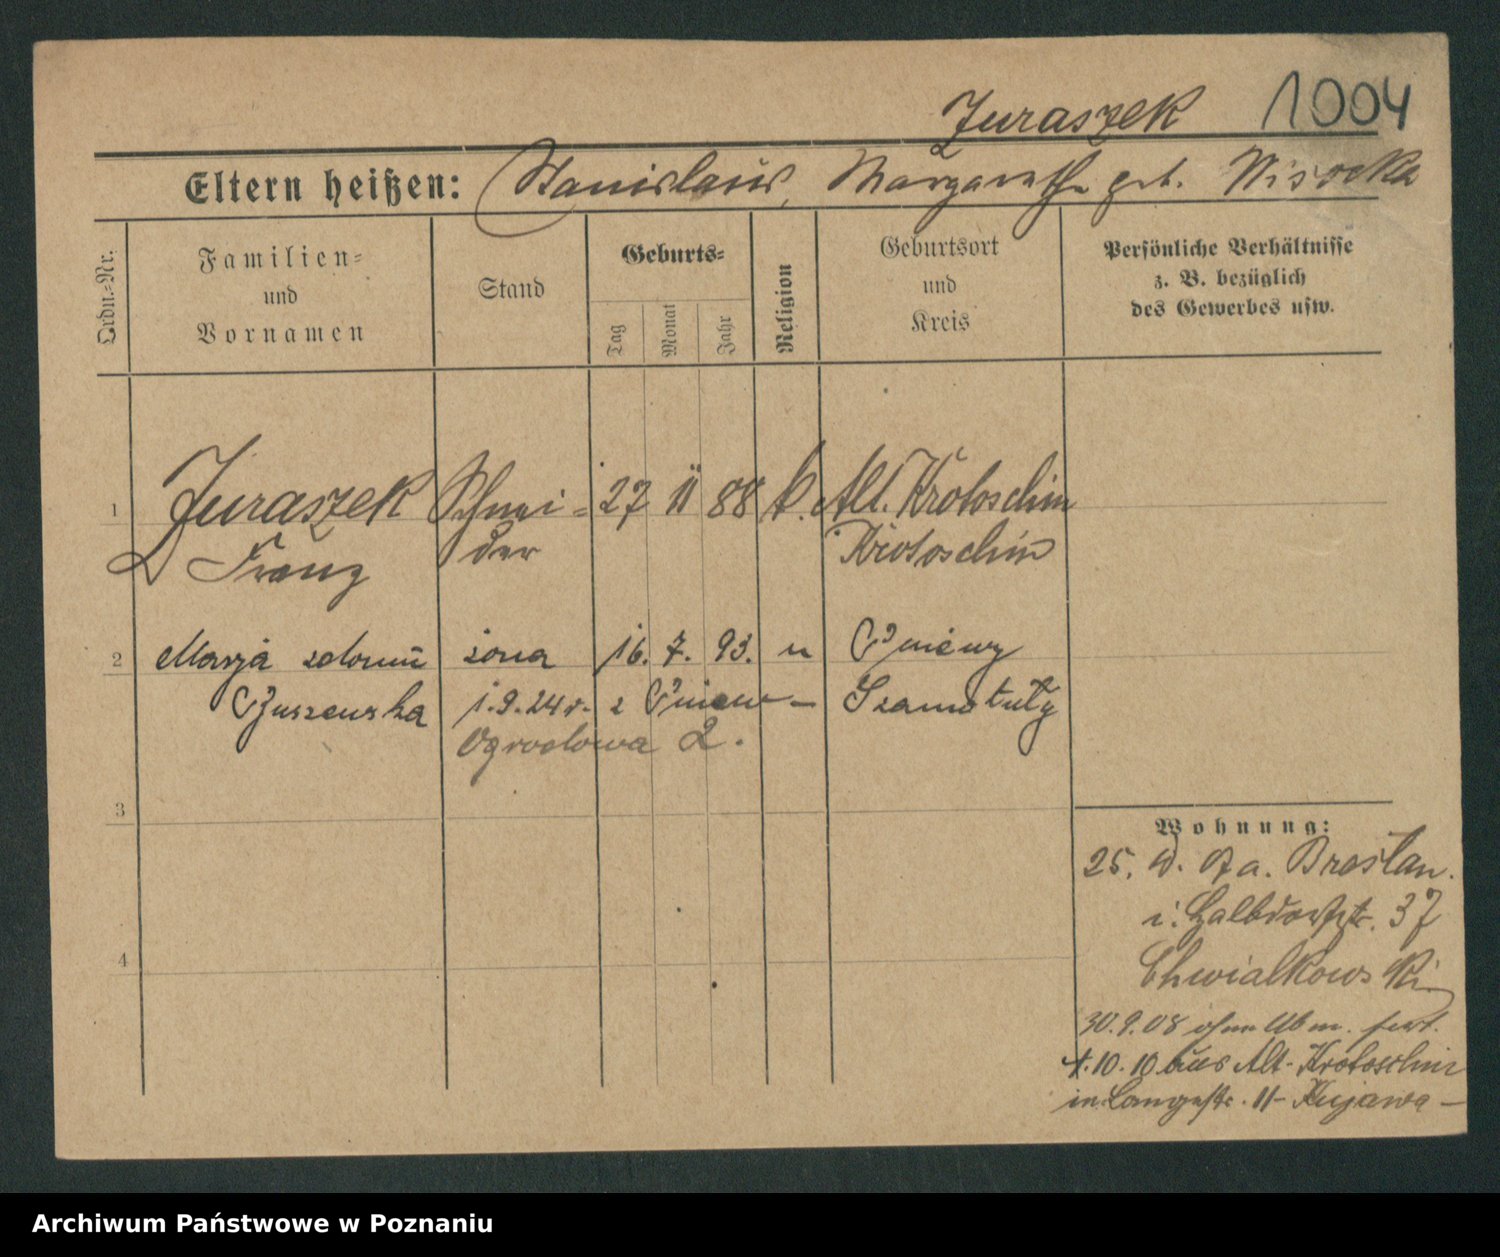 Juraszek 1004
Eltern heißen: Stanislaus, Margarethe geb. Wisocka
Ordn.=Nr.
Familien=
und
Vornamen
Stand
Geburts=
Tag
Monat
Jahr
Religion
Geburtsort
und
Kreis
Persönliche Verhältnisse
z. B. bezüglich
des Gewerbes usw.
1 Juraszek Schnei= 27 11 88 k. Alt. Krotoschin
Franz der Krotoschin
2 Marja z domu żona 16. 7. 93. " Pniewy
1.9.24r. z Pniew - Szamotuły
Ogrodowa 2.
3
4
Wohnung:
25. Breslau.
i. 37
Chwialkowski
30.9.08 ohne Abm. fort.
1.10.10 aus Alt-Krotoschin
in Langestr. 11 - Kujawa -
Archiwum Państwowe w Poznaniu